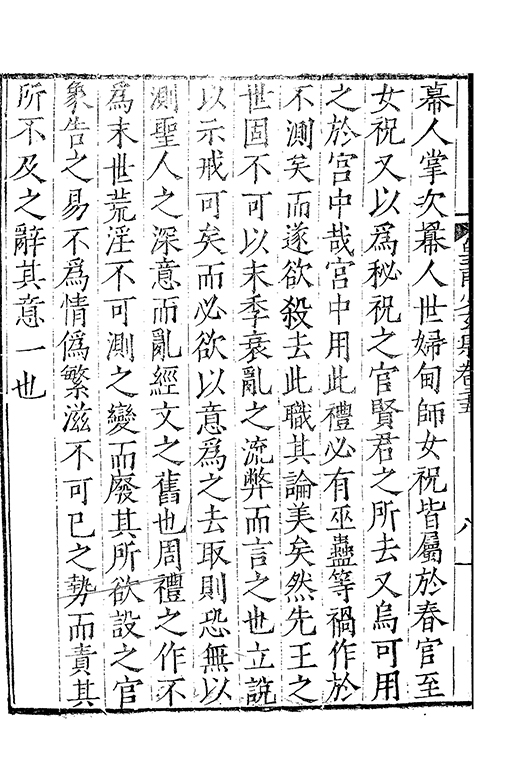 幕人掌次冪人世婦甸師女祝皆屬於春官至
女祝又以為秘祝之官賢君之所去又烏可用
之於宮中哉宮中用此禮必有巫蠱等禍作於
不測矣而遂欲殺去此職其論美矣然先王之
世固不可以末季衰亂之流弊而言之也立說
以示戒可矣而必欲以意為之去取則恐無以
測聖人之深意而亂經文之舊也周禮之作不
為末世荒淫不可測之變而廢其所欲設之官
象告之易不為情僞繁滋不可已之勢而責其
所不及之辭其意一也